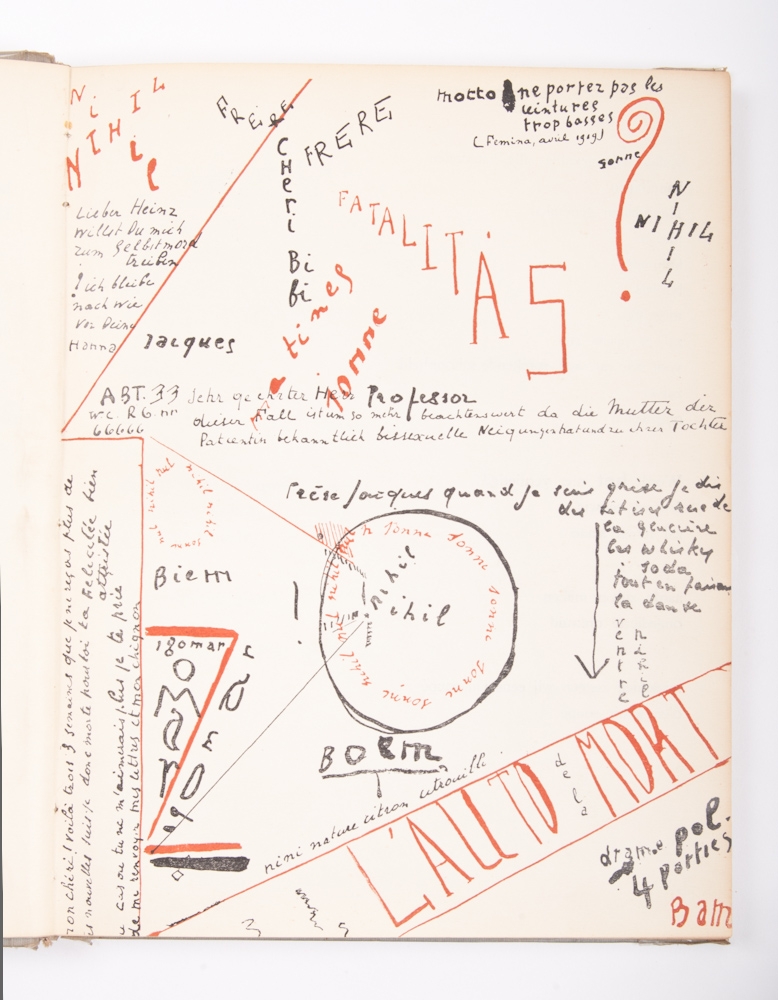 Ni
NIHIL
il
FREre
CHeri
Bi
Bi
FRERE
motto ne portez pas les
ceintures
trop basses
(Femina, avril 1919)
sonne
NIHIL
NIHIL
FATALITAS!
Lieber Heinz
willst Du mich
zum Selbstmord
treiben
? ich bleibe
nach wie
vor Deine
Hanna
Jacques
tines
Tonne
ABT. 33 Sehr geehrter Herr Professor
W.C. RG. nr.
66666
dieser Fall ist um so mehr beachtenswert da die Mutter der
Patientin bekanntlich bissexuelle Neigungen hat und zu ihrer Tochter
mon cheri! Voilà trois 3 semaines que je ne reçois plus de
tes nouvelles suis-je donc morte pour toi ta
attristée
au cas ou tu ne m'aimerais plus je te prie
de me renvoyer mes lettres et mon chignon
nul nihil nihil nihil sonne nul nul
Biem
!
Frère Jacques quand je suis grise je dis
des bêtises rue de
la glacière
les whisky
soda
tout en faisant
la danse
ventre
nihil
Tonne Tonne Tonne Tonne Tonne sonne nihil nul nihil nul
nihil
ihil
Boem
Zigomar
zigomar
nini nature citron citrouille
L'AUTO de la MORT
drame pol.
4 parties
Bam